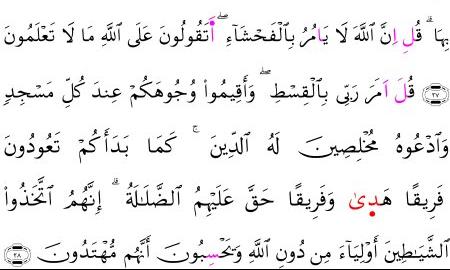 بِهَا ۗ قُلِ اِنَّ ٱللَّهَ لَا يَامُرُ بِٱلْفَحْشَآءِ ۖ أَتَقُولُونَ عَلَى ٱللَّهِ مَا لَا تَعْلَمُونَ
٢٧ قُلَ اَمَرَ رَبِّى بِٱلْقِسْطِ ۖ وَأَقِيمُوا۟ وُجُوهَكُمْ عِندَ كُلِّ مَسْجِدٍ
وَٱدْعُوهُ مُخْلِصِينَ لَهُ ٱلدِّينَ ۚ كَمَا بَدَأَكُمْ تَعُودُونَ
فَرِيقًا هَدِىٰ وَفَرِيقًا حَقَّ عَلَيْهِمُ ٱلضَّلَـٰلَةُ ۗ إِنَّهُمُ ٱتَّخَذُوا۟
ٱلشَّيَـٰطِينَ أَوْلِيَآءَ مِن دُونِ ٱللَّهِ وَيَحْسِبُونَ أَنَّهُم مُّهْتَدُونَ ٢٨